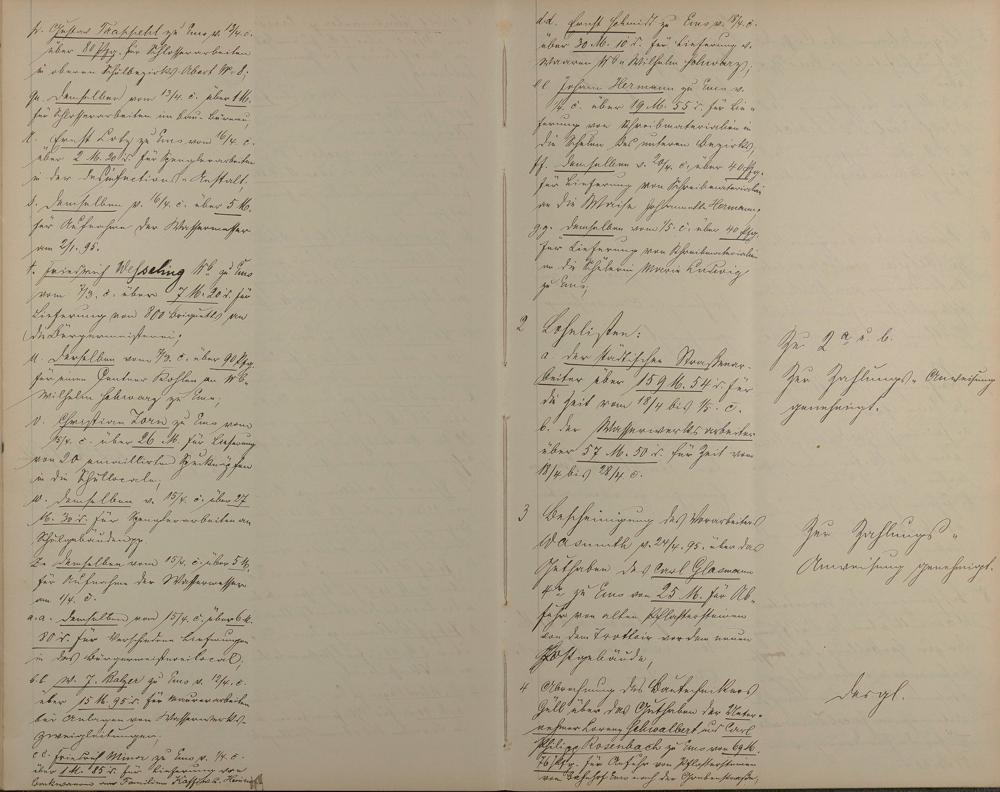 p. Gustav Raffelt zu Ems v. 12/4. c.
über 80 Pfg. für Schlosserarbeiten
im oberen Schulbezirks Abort № 8;
q. demselben vom 13/4. c. über 1 M.
für Schlosserarbeiten im Bau-Büreau;
r. Ernst Lotz zu Ems vom 16/4. c.
über 2 M. 20 d. für Spenglerarbeiten
in der Desinfections-Anstalt,
s. demselben v. 16/4. c. über 5 M.
für Aufnahme der Wassermesser
am 2/1. 95.
t. Friedrich Weßeling Wb. zu Ems
vom 7/3. c. über 7 M. 20 d. für
Lieferung von 800 Briquetts an
die Bürgermeisterei;
u. derselben vom 7/3. c. über 90 Pfg.
für einen Centner Kohlen an Wb.
Wilhelm Schwarz zu Ems;
v. Christian Zorn zu Ems vom
15/4. c. über 26 M. für Lieferung
von 20 emaillirten Spucknäpfen
in die Schullocale;
w. demselben v. 15/4. c. über 27
M. 30 d. für Spenglerarbeiten an
Schulgebäuden pp.
z. demselben vom 15/4. c. über 5 M.
für Aufnahme der Wassermesser
am 1/4. c.
a.a. demselben vom 15/4. c. über 6 M.
80 d. für verschiedene Lieferungen
in das Bürgermeistereilocal;
b.b. W. J. Balzer zu Ems v. 12/4. c.
über 15 M. 95 d. für Maurerarbeiten
bei Anlagen von Wasserwerks-
zweigleitungen;
c.c. Friedrich Minor zu Ems v. 1/4. c.
über 1 M. 85 d. für Lieferung von
Familien
dd. Ernst Schmidt zu Ems v. 18/4. c.
über 30 M. 10 d. für Lieferung v.
Waaren Wb. Wilhelm Schwarz;
ee Johann Hermann zu Ems v.
1/4. c. über 19 M. 55 d. für Lie-
ferung von Schreibmaterialien in
die Schulen des unteren Bezirks;
ff. demselben v. 20/4. c. über 40 Pfg.
für Lieferung von Schreibmaterialien
an die Waise Johannette Hermann.
gg. demselben vom 1/5. c. über 40 Pfg.
für Lieferung von Schreibmaterialien
an die Schülerin Marie Ludwig
zu Ems;
2 Lohnlisten:
a. der städtischen Strassenar-
beiter über 159 M. 54 d. für
die Zeit vom 18/4 bis 1/5. c.
b. der Wasserwerksarbeiter
über 57 M. 50 d. für Zeit vom
18/4 bis 28/4 c.
Zu 2 a u. b.
Zur Zahlungs-Anweisung
genehmigt.
3 Bescheinigung des Vorarbeiters
Wasmuth v. 24/4. 95. über das
Guthaben des Carl Glasmann
zu Ems von 25 M. für Ab-
fuhr von alten Pflastersteinen
von dem Trottoir vor dem neuen
Postgebäude;
Zur Zahlungs-
Anweisung genehmigt.
4 Abrechnung des Bautechnikers
Güll über das Guthaben der Unter-
nehmer Lorenz Schwalbert und Carl
Philipp Rosenbach zu Ems von 69 M.
76 Pfg. für Anfuhr von Pflastersteinen
vom Bahnhof Ems nach der Grabenstraße;
desgl.